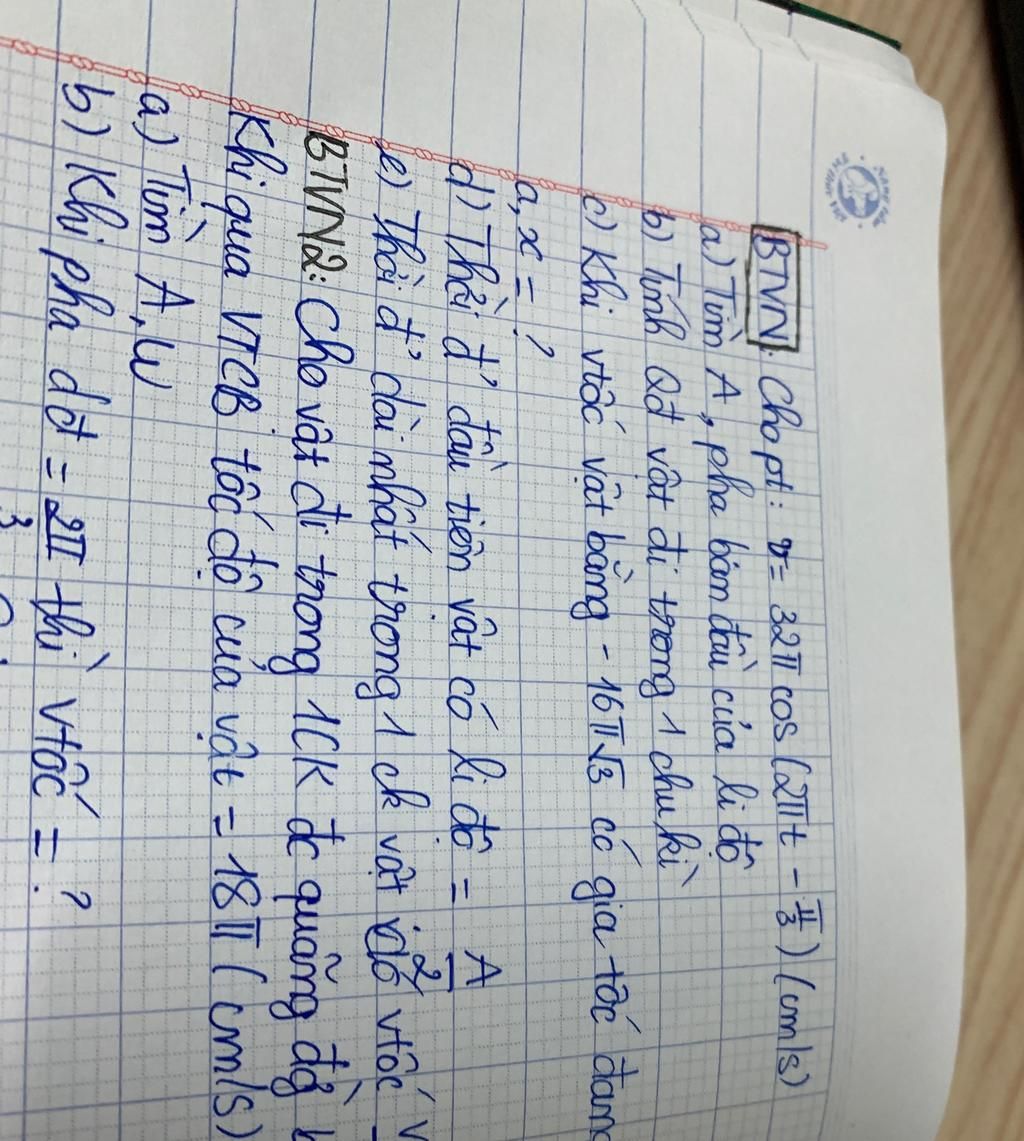 BTVN: Cho pt: v = 32π cos (2πt - π/3) (cm/s)
a) Tìm A, pha ban đầu của li độ
b) Tính Qđ vật đi trong 1 chu kì
c) Khi vtốc vật bằng - 16π√3 có gia tốc đang
a, x = ?
d) Thời đ' đầu tiên vật có li độ = A/2
e) Thời đ' dài nhất trong 1 ck vật có vtốc
BTVN2: Cho vật đi trong 1CK đc quãng đg
Khi qua VTCB tốc độ của vật = 18π (cm/s)
a) Tìm A, W
b) Khi pha dđ = 2π/3 thì vtốc = ?